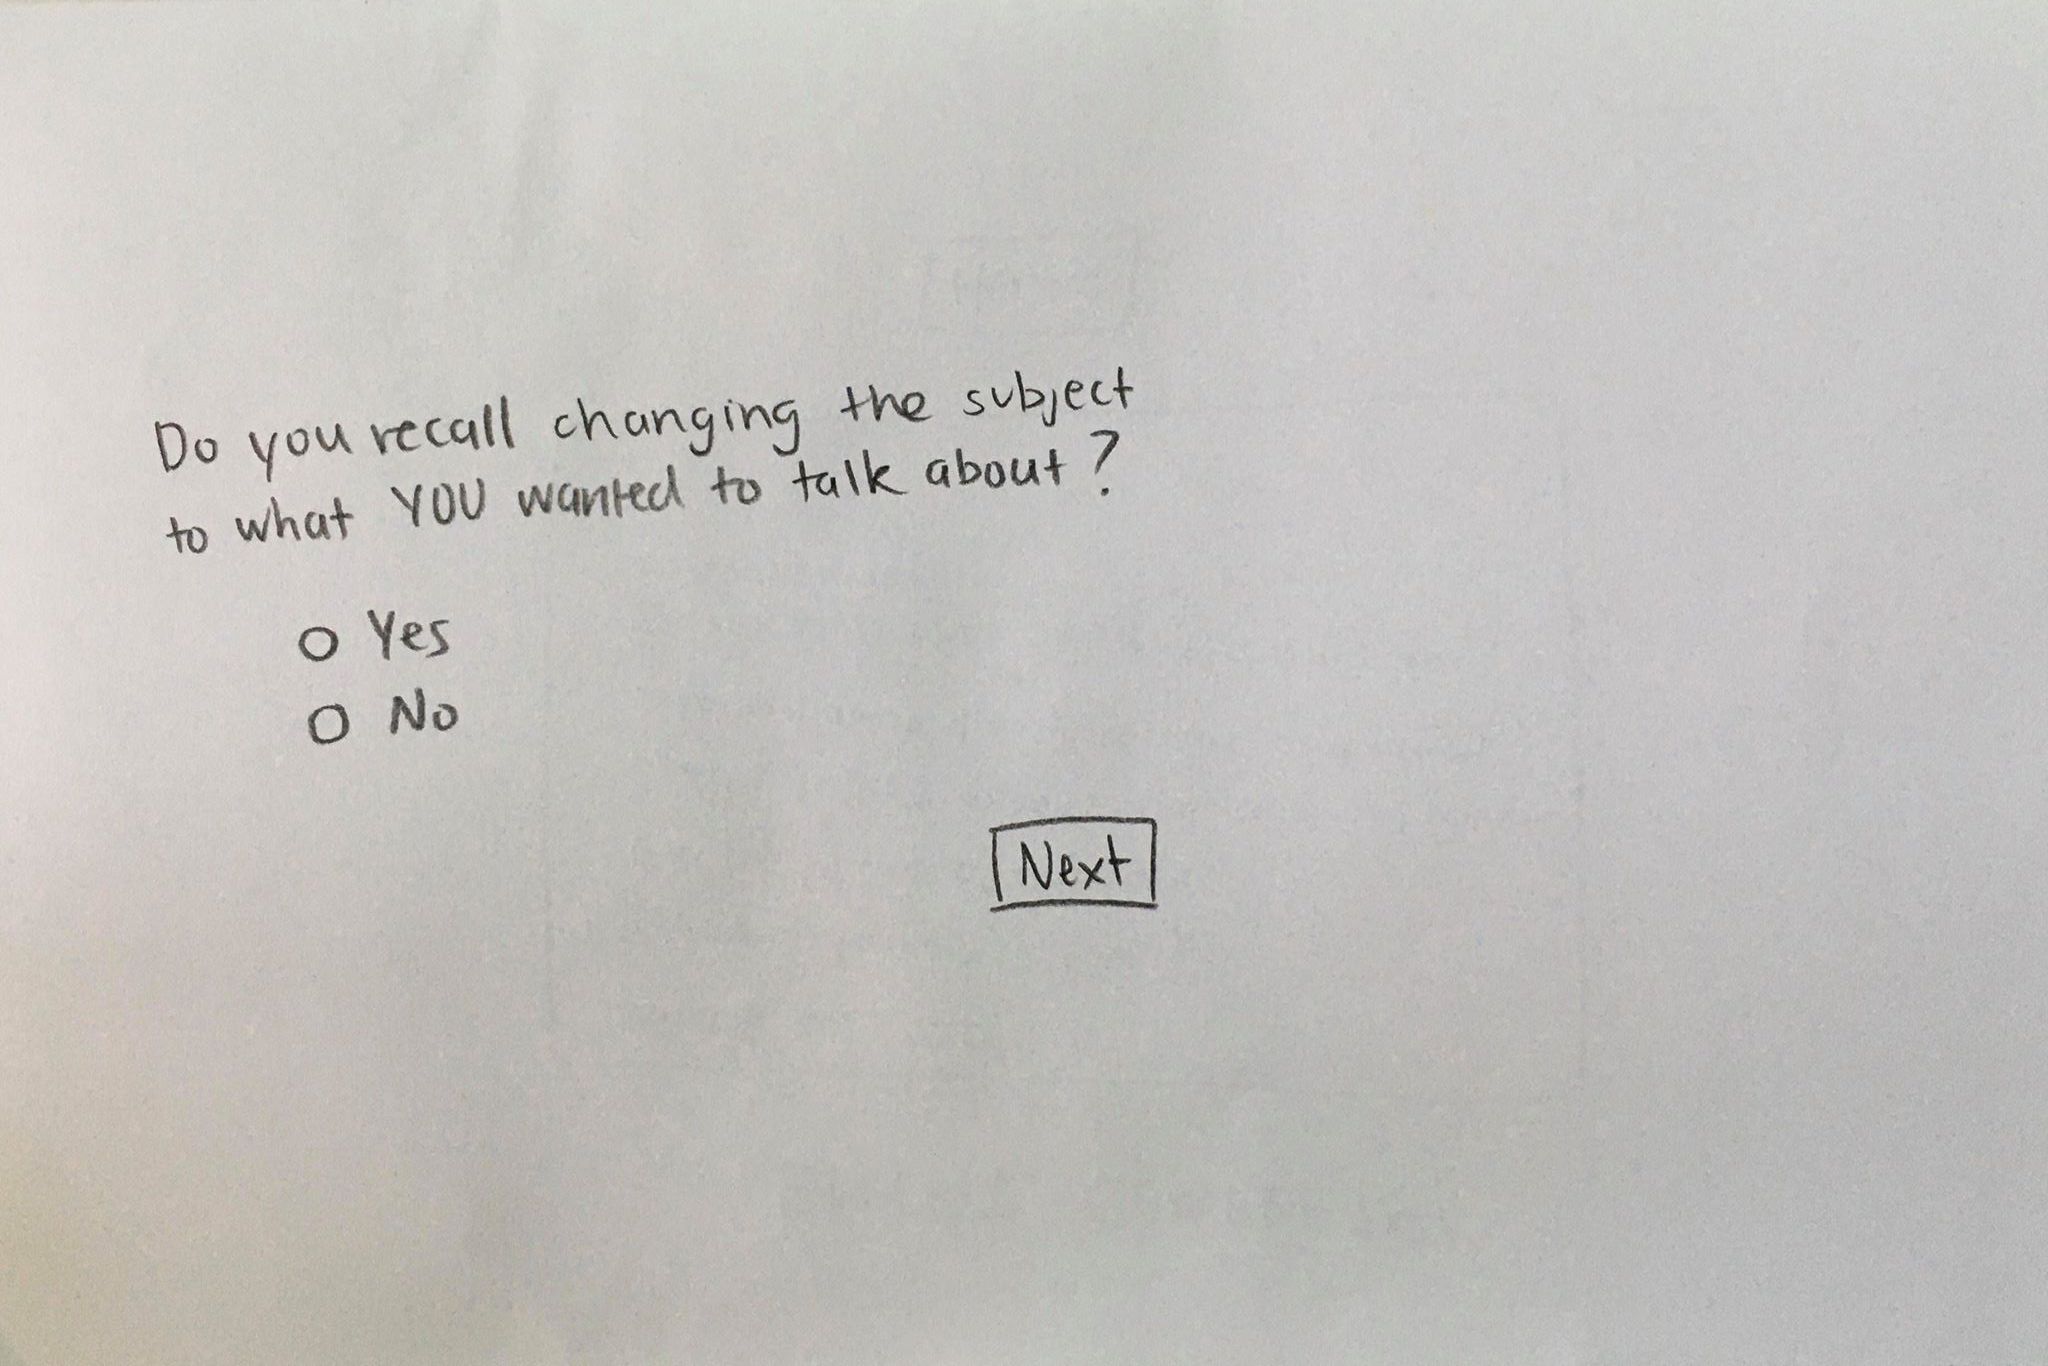 Do you recall changing the subject
to what YOU wanted to talk about?
Yes
No
Next